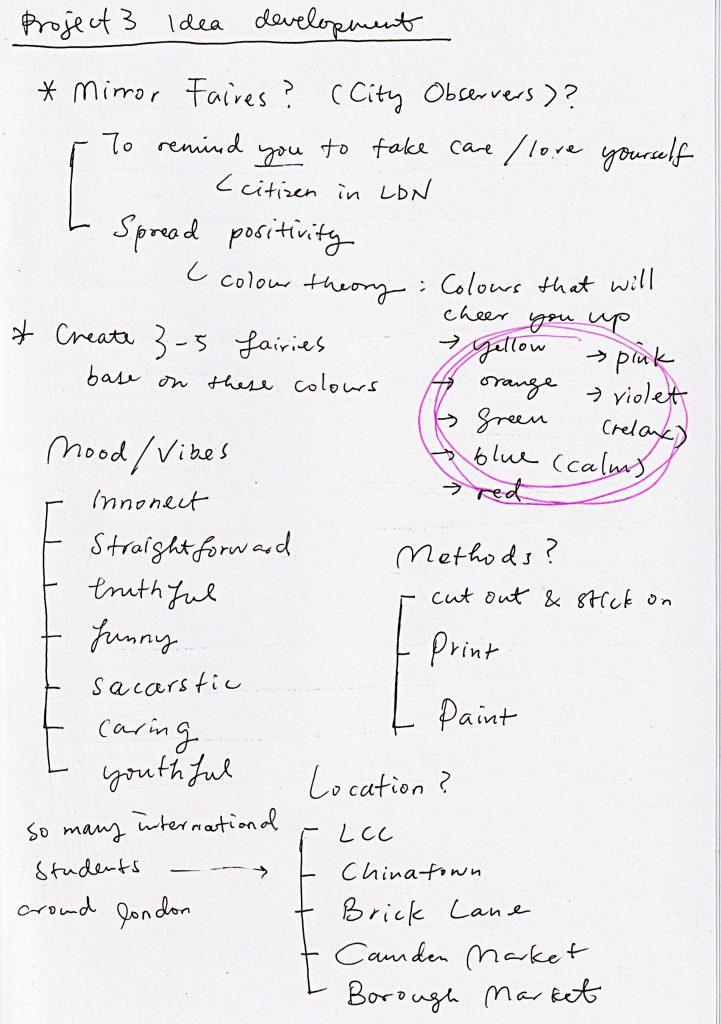 Project 3 Idea development
* Mirror Faires? (City Observers)?
To remind you to take care/love yourself
citizen in LDN
Spread positivity
colour theory: Colours that will
cheer you up
→ yellow → pink
→ orange → violet
→ green (relax)
→ blue (calm)
→ red
* Create 3-5 fairies
base on these colours
Mood/Vibes
Innonect
Straightforward
truthful
funny
sacarstic
caring
youthful
Methods?
cut out & stick on
Print
Paint
Location?
so many international
students →
around london
LCC
Chinatown
Brick Lane
Camden Market
Borough Market